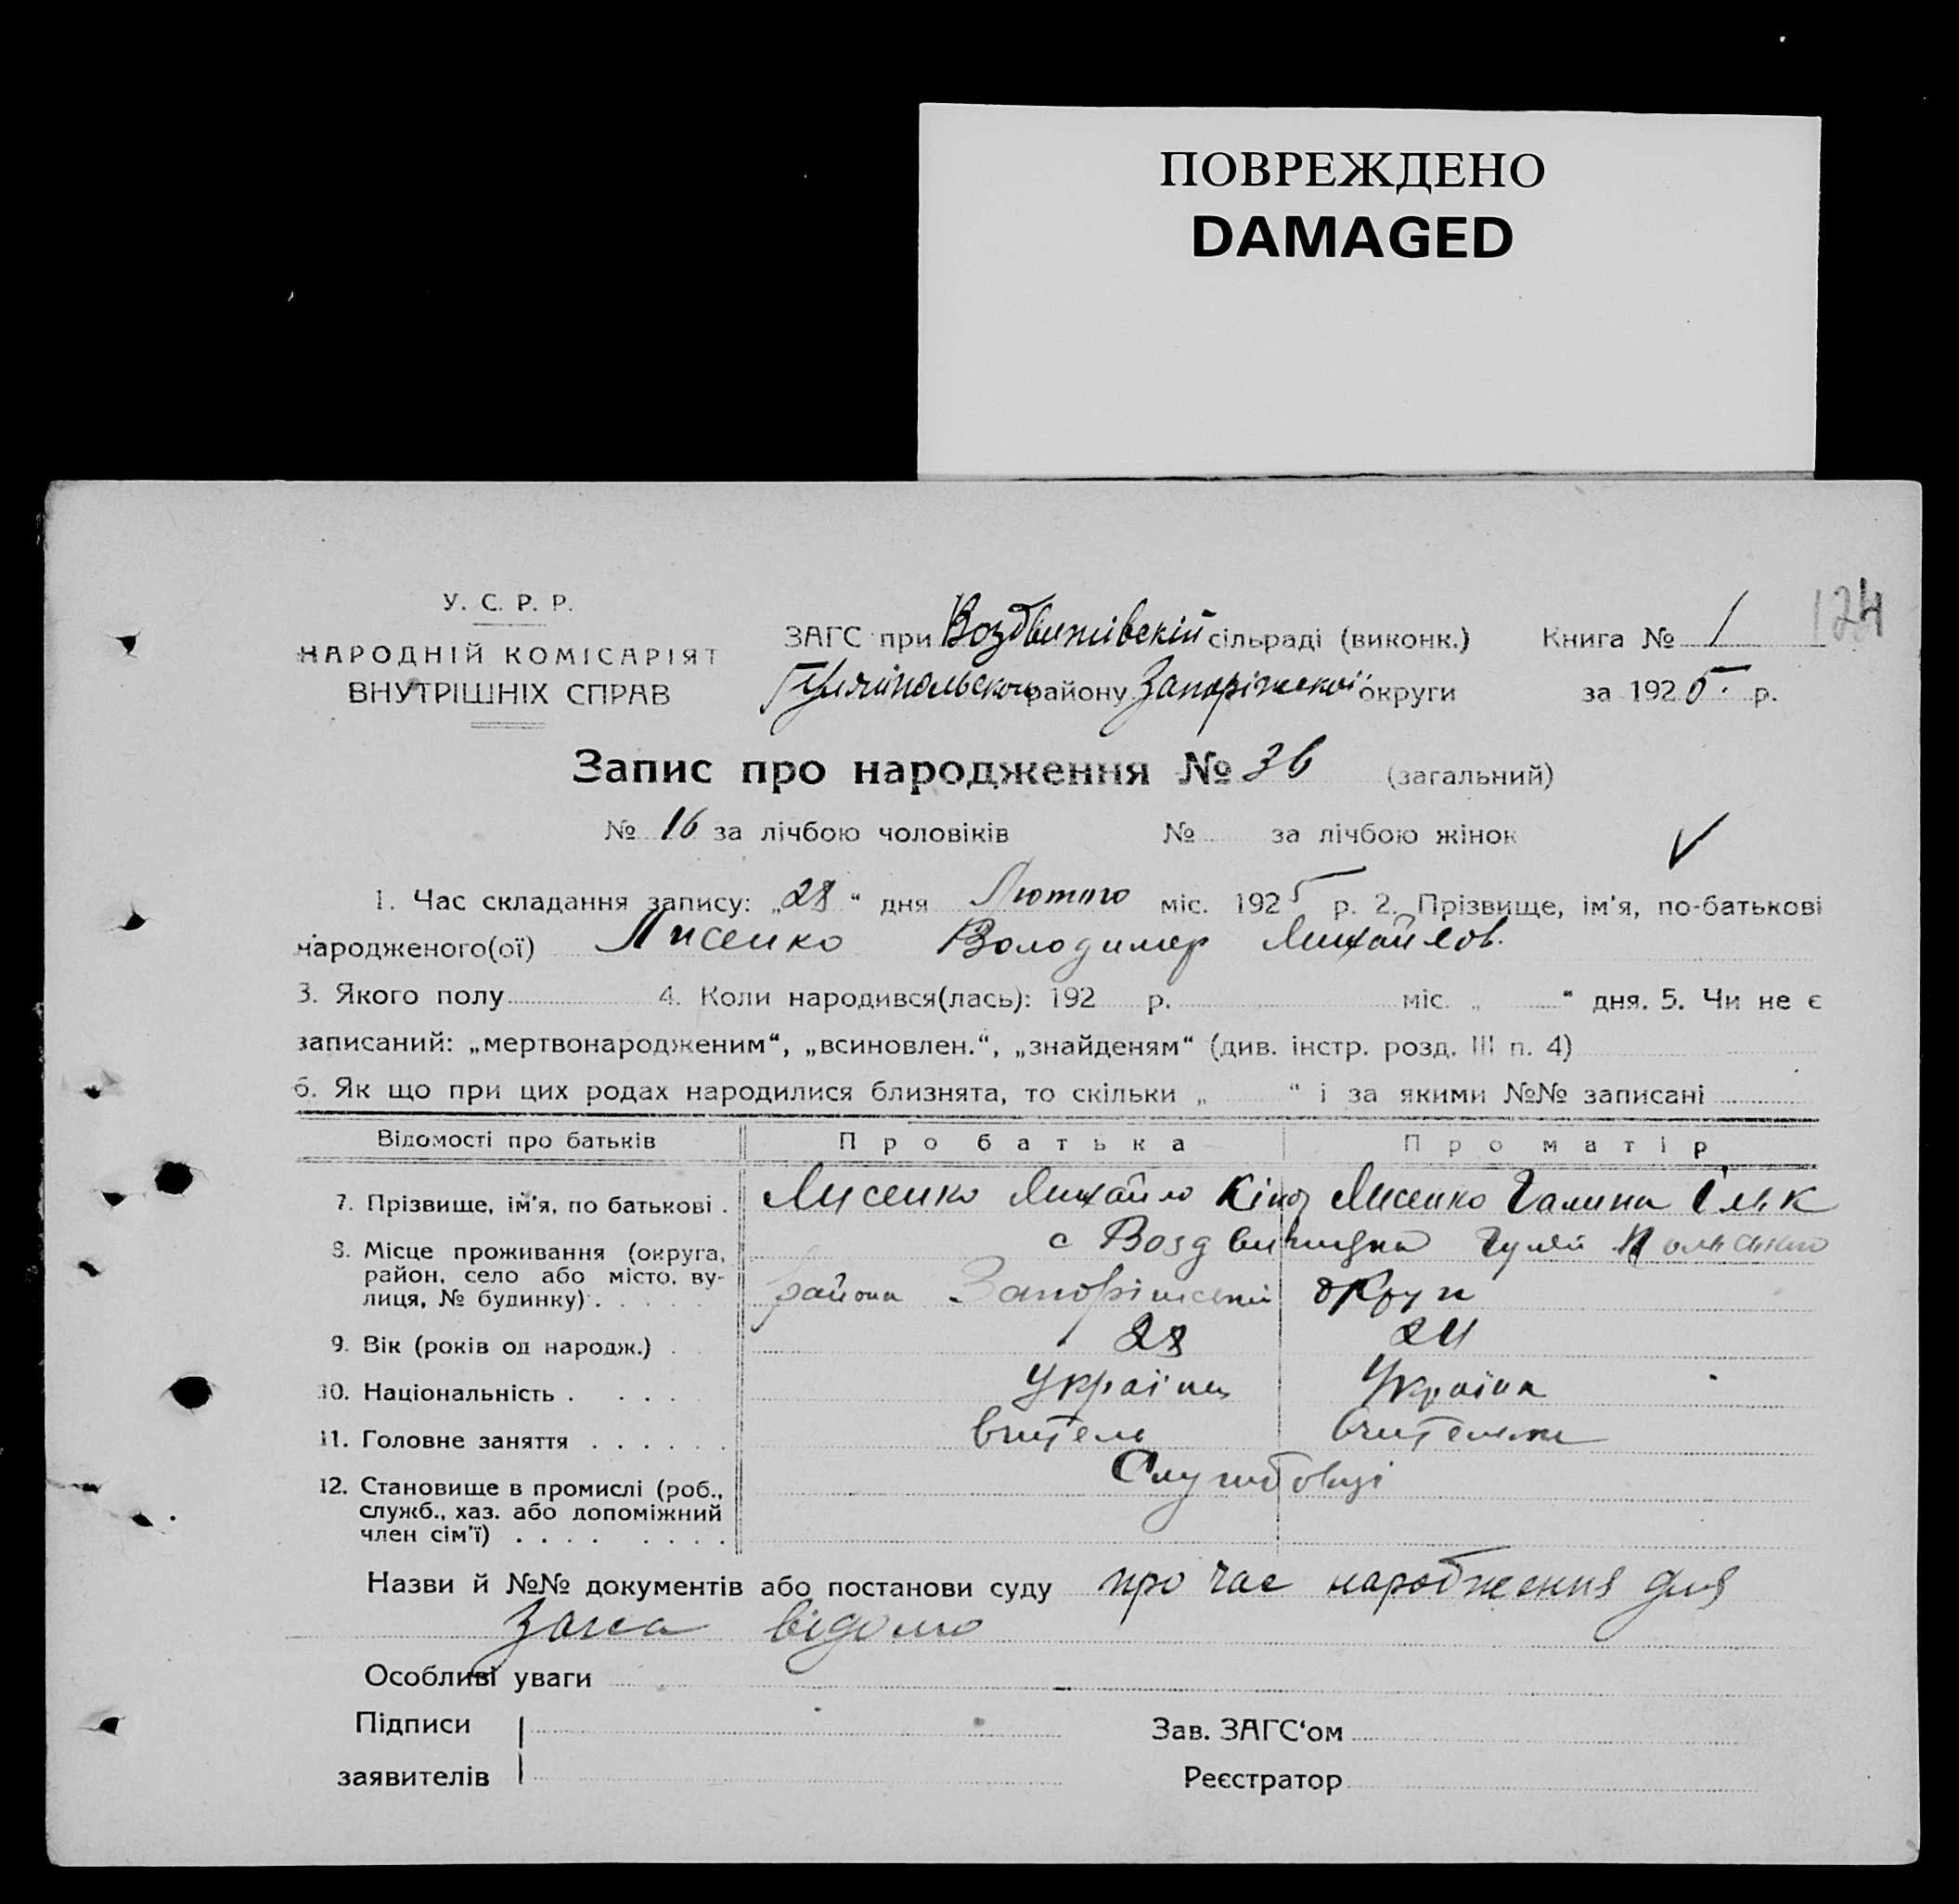 ПОВРЕЖДЕНО
DAMAGED
У. С. Р. Р.
НАРОДНІЙ КОМІСАРІЯТ
ВНУТРІШНІХ СПРАВ
ЗАГС при Воздвижівскій сільраді (виконк.) Книга № 1 124
Гуляйпольского району Запоріжскої округи за 1925 р.
Запис про народження № 36 (загальний)
№ 16 за лічбою чоловіків № за лічбою жінок
1. Час складання запису: „28“ дня Лютого міс. 1925 р. 2. Прізвище, ім'я, по-батькові
народженого(ої) Лисенко Володимер Михайлов.
3. Якого полу 4. Коли народився(лась): 192 р. міс. „ “ дня. 5. Чи не є
записаний: „мертвонародженим“, „всиновлен.“, „знайденям“ (див. інстр. розд. III п. 4)
6. Як що при цих родах народилися близнята, то скільки „ “ і за якими №№ записані
Відомості про батьків Про батька Про матір
7. Прізвище, ім'я, по батькові . Лисенко Михайло Лисенко Галина
8. Місце проживання (округа, район, село або місто, вулиця, № будинку) . с Воздвижицка Гуляй
района Запоріжській округи
9. Вік (років од народж.) . 28 24
10. Національність . . . . Українц Україна
11. Головне заняття . . . . . . вчитель вчителька
12. Становище в промислі (роб., служб., хаз. або допоміжний член сім'ї) . . . . . . . . Службовці
Назви й №№ документів або постанови суду про час народження для
загса відомо
Особливі уваги
Підписи
заявителів
Зав. ЗАГС‘ом
Реєстратор